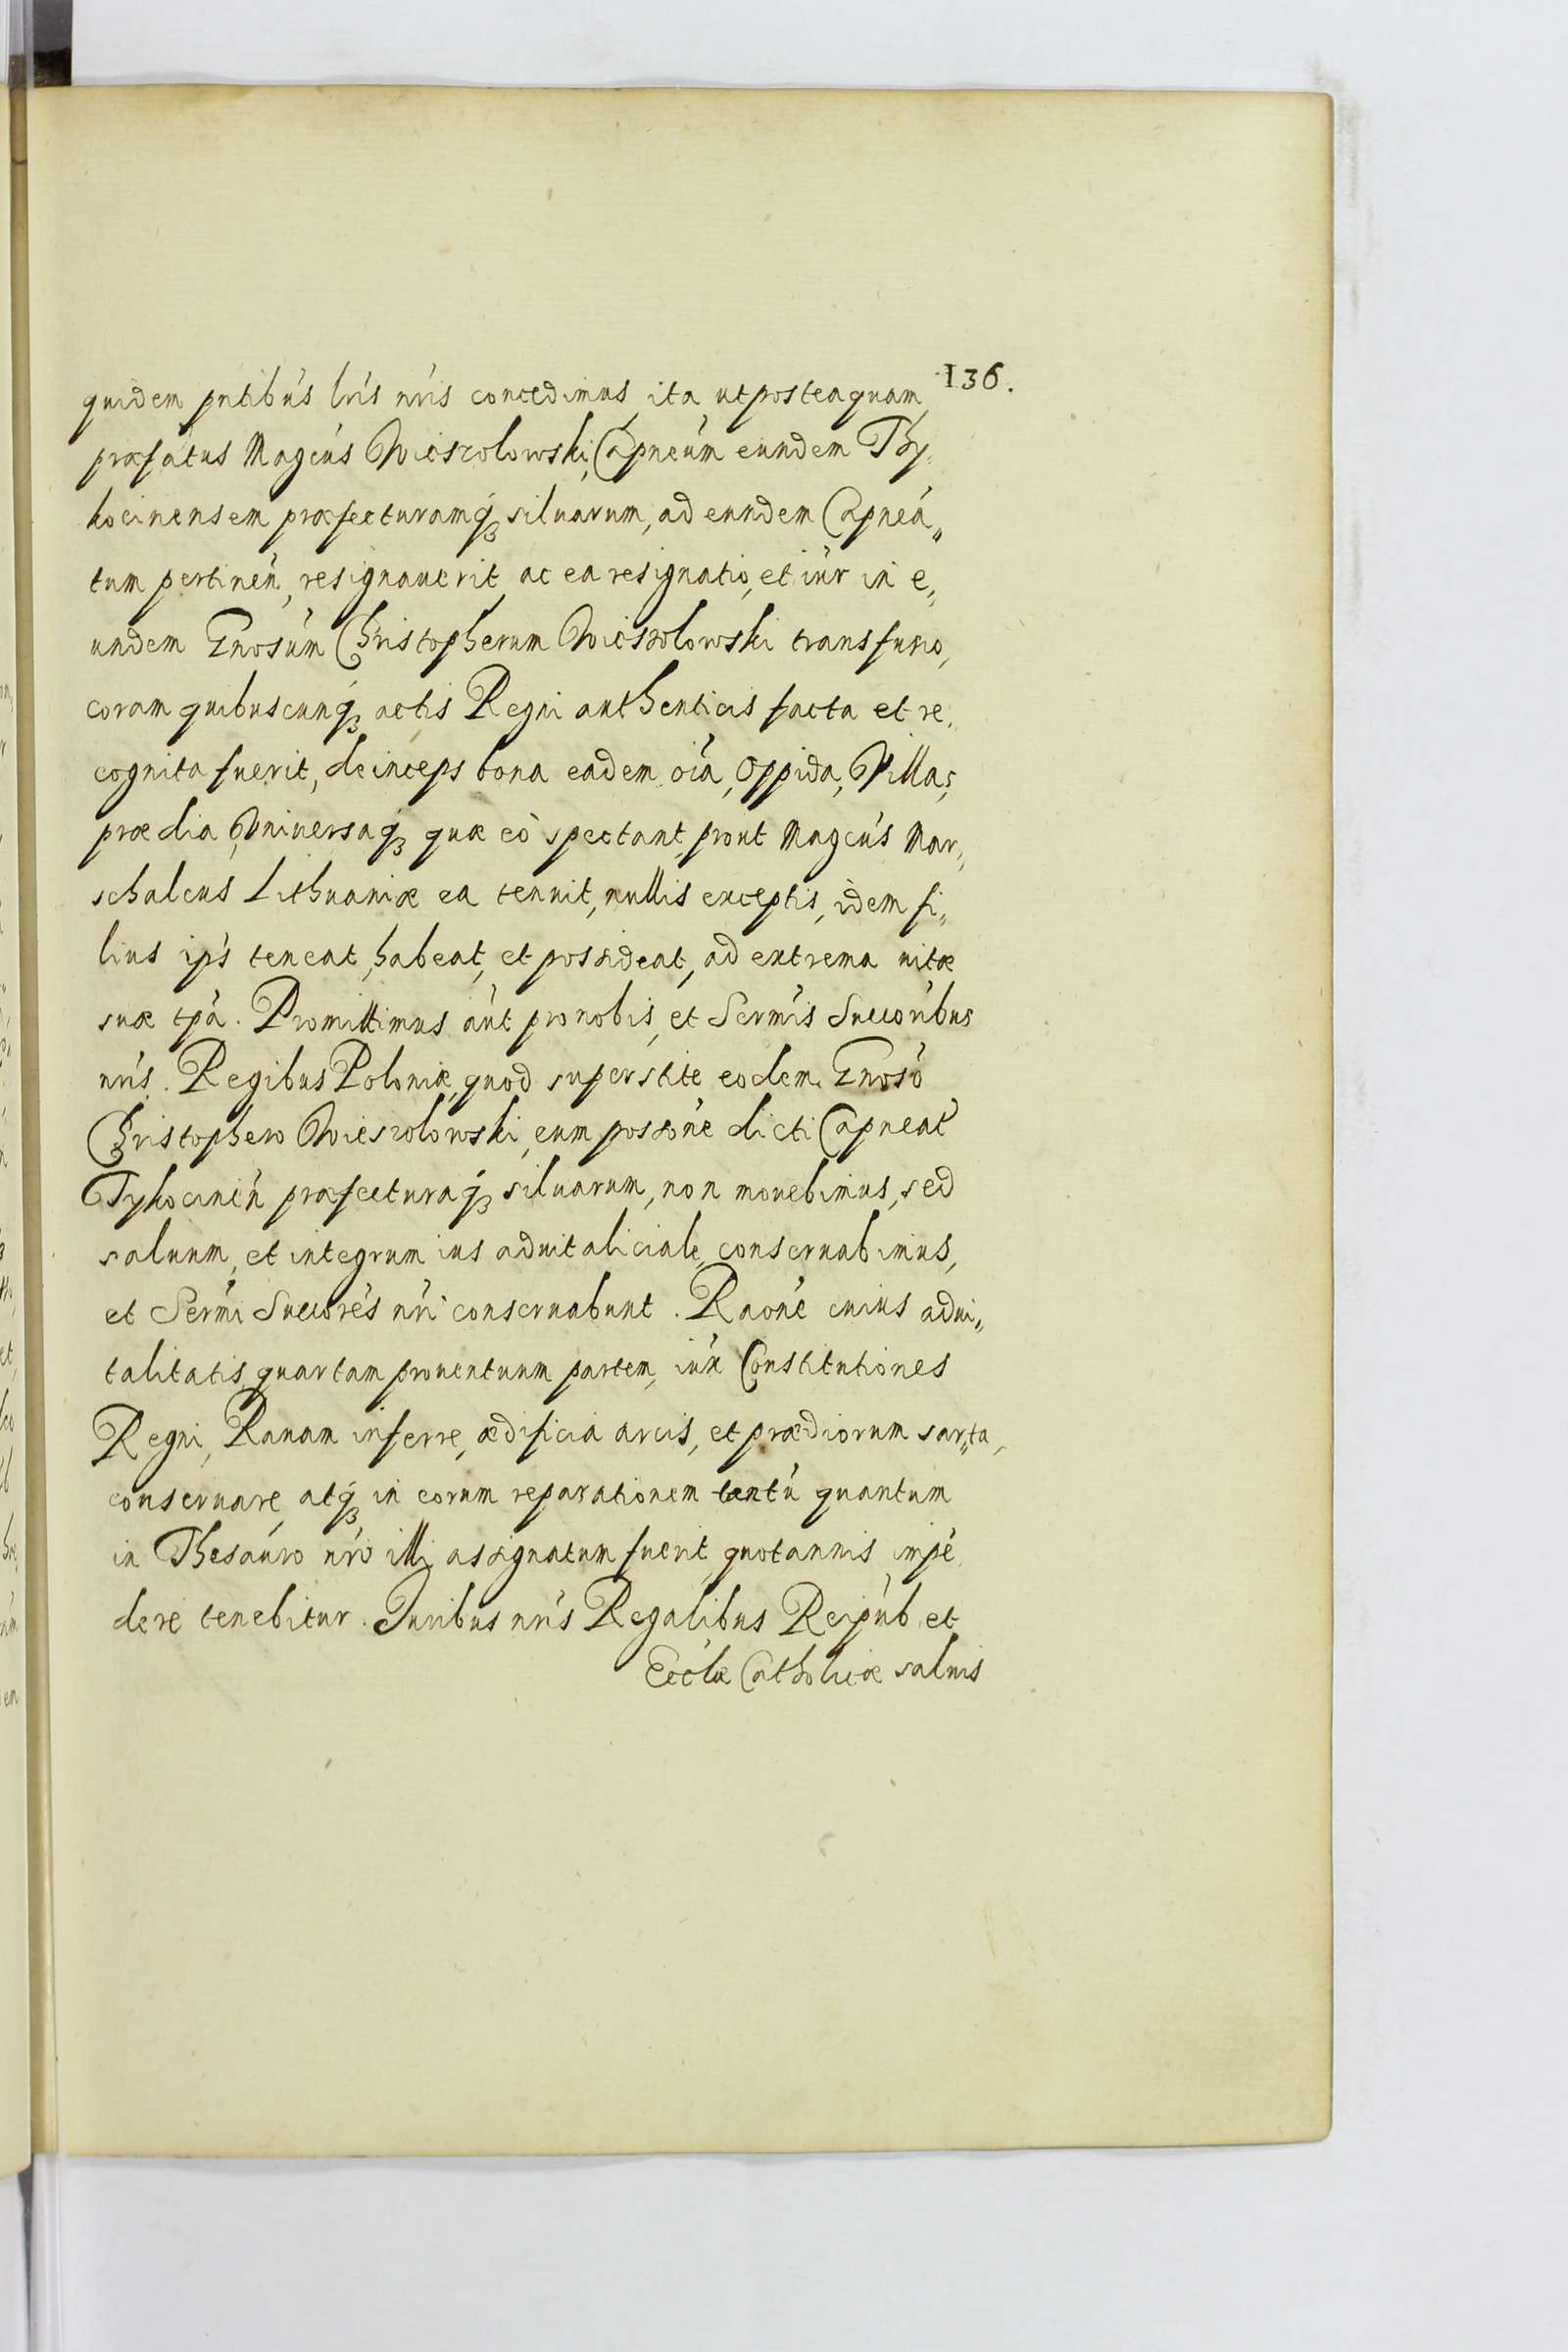 136.
quidem pntibús lrís nrís concedimus, ita ut posteaquam,
præfatus Magcús Wieszolowski, Capneúm eundem Thy„
kocinensem præfecturamq́ꝫ siluarum, ad eundem Capneá„
tum pertineń, resignauerit, ac ea resignatio, et iúr in e„
undem Gnosúm Christopherum Wieszolowski transfusio,
coram quibuscunq́ꝫ actis Regni authenticis facta et re„
cognita fuerit, deinceps bona eadem oía, Oppida, Villas,
prædia, Vniuersaq́ꝫ quæ eò spectant, prout Magcús Mar„
schalcus Lithuaniæ ea tenuit, nullis exceptis, idem fi„
lius ips teneat, habeat, et possideat, ad extrema uitæ
suæ tpá. Promittimus aút pro nobis, et Sermís Succoríbus
nrís. Regibus Poloniæ, quod superstite eodem Gnosó
Christophero Wieszolowski, eum possoné dicti Capneat́
Tykocineń præfecturaq́ꝫ siluarum, non mouebimus, sed
saluum, et integrum ius aduitaliciale, conseruabimus,
et Sermí Succorés nrí conseruabunt. Raoné cuius adui„
talitatis, quartam prouentuum partem, iux́ Constitutiones
Regni, Rauam inferre, ædificia arcis, et prædiorum sarta,
conseruare, atq́ꝫ in eorum reparationem tantú quantum
in Thesauro nró illi assignatum fuerit, quotannis impé
dere tenebitur. Juribus nrís Regalibus Reipúb, et
Ecclæ Catholicæ saluis